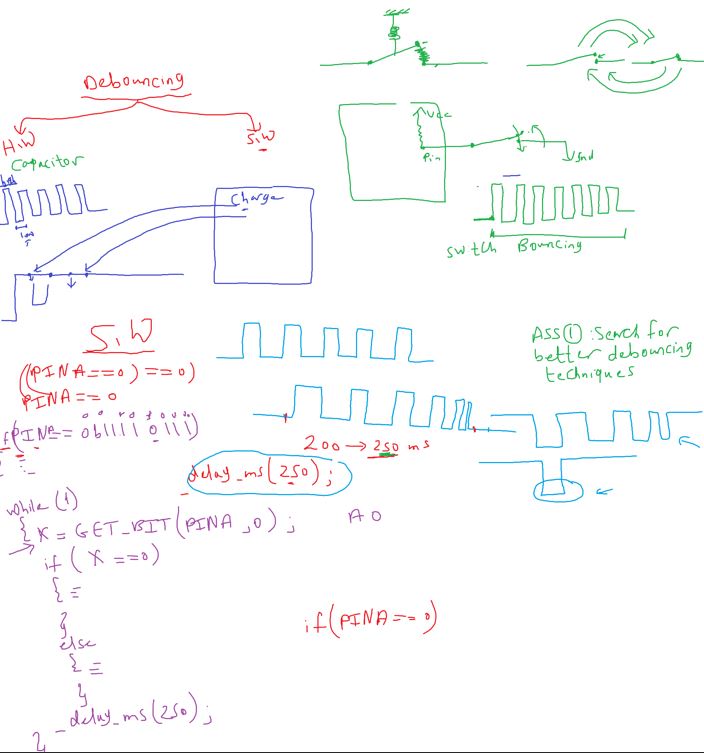 Debouncing
H.W
S.W
Capacitor
Charge
Vcc
Pin
Gnd
switch Bouncing
S.W
(PINA==0)==0)
PINA == 0
if(PINA== 0b11110111)
200 → 250 ms
delay_ms(250);
ASS(1) : Search for
better debouncing
techniques
while (1)
{ X = GET_BIT(PINA ,0) ;
A0
if ( X ==0)
{ =
}
else
{ =
}
delay_ms(250) ;
}
if(PINA== 0)